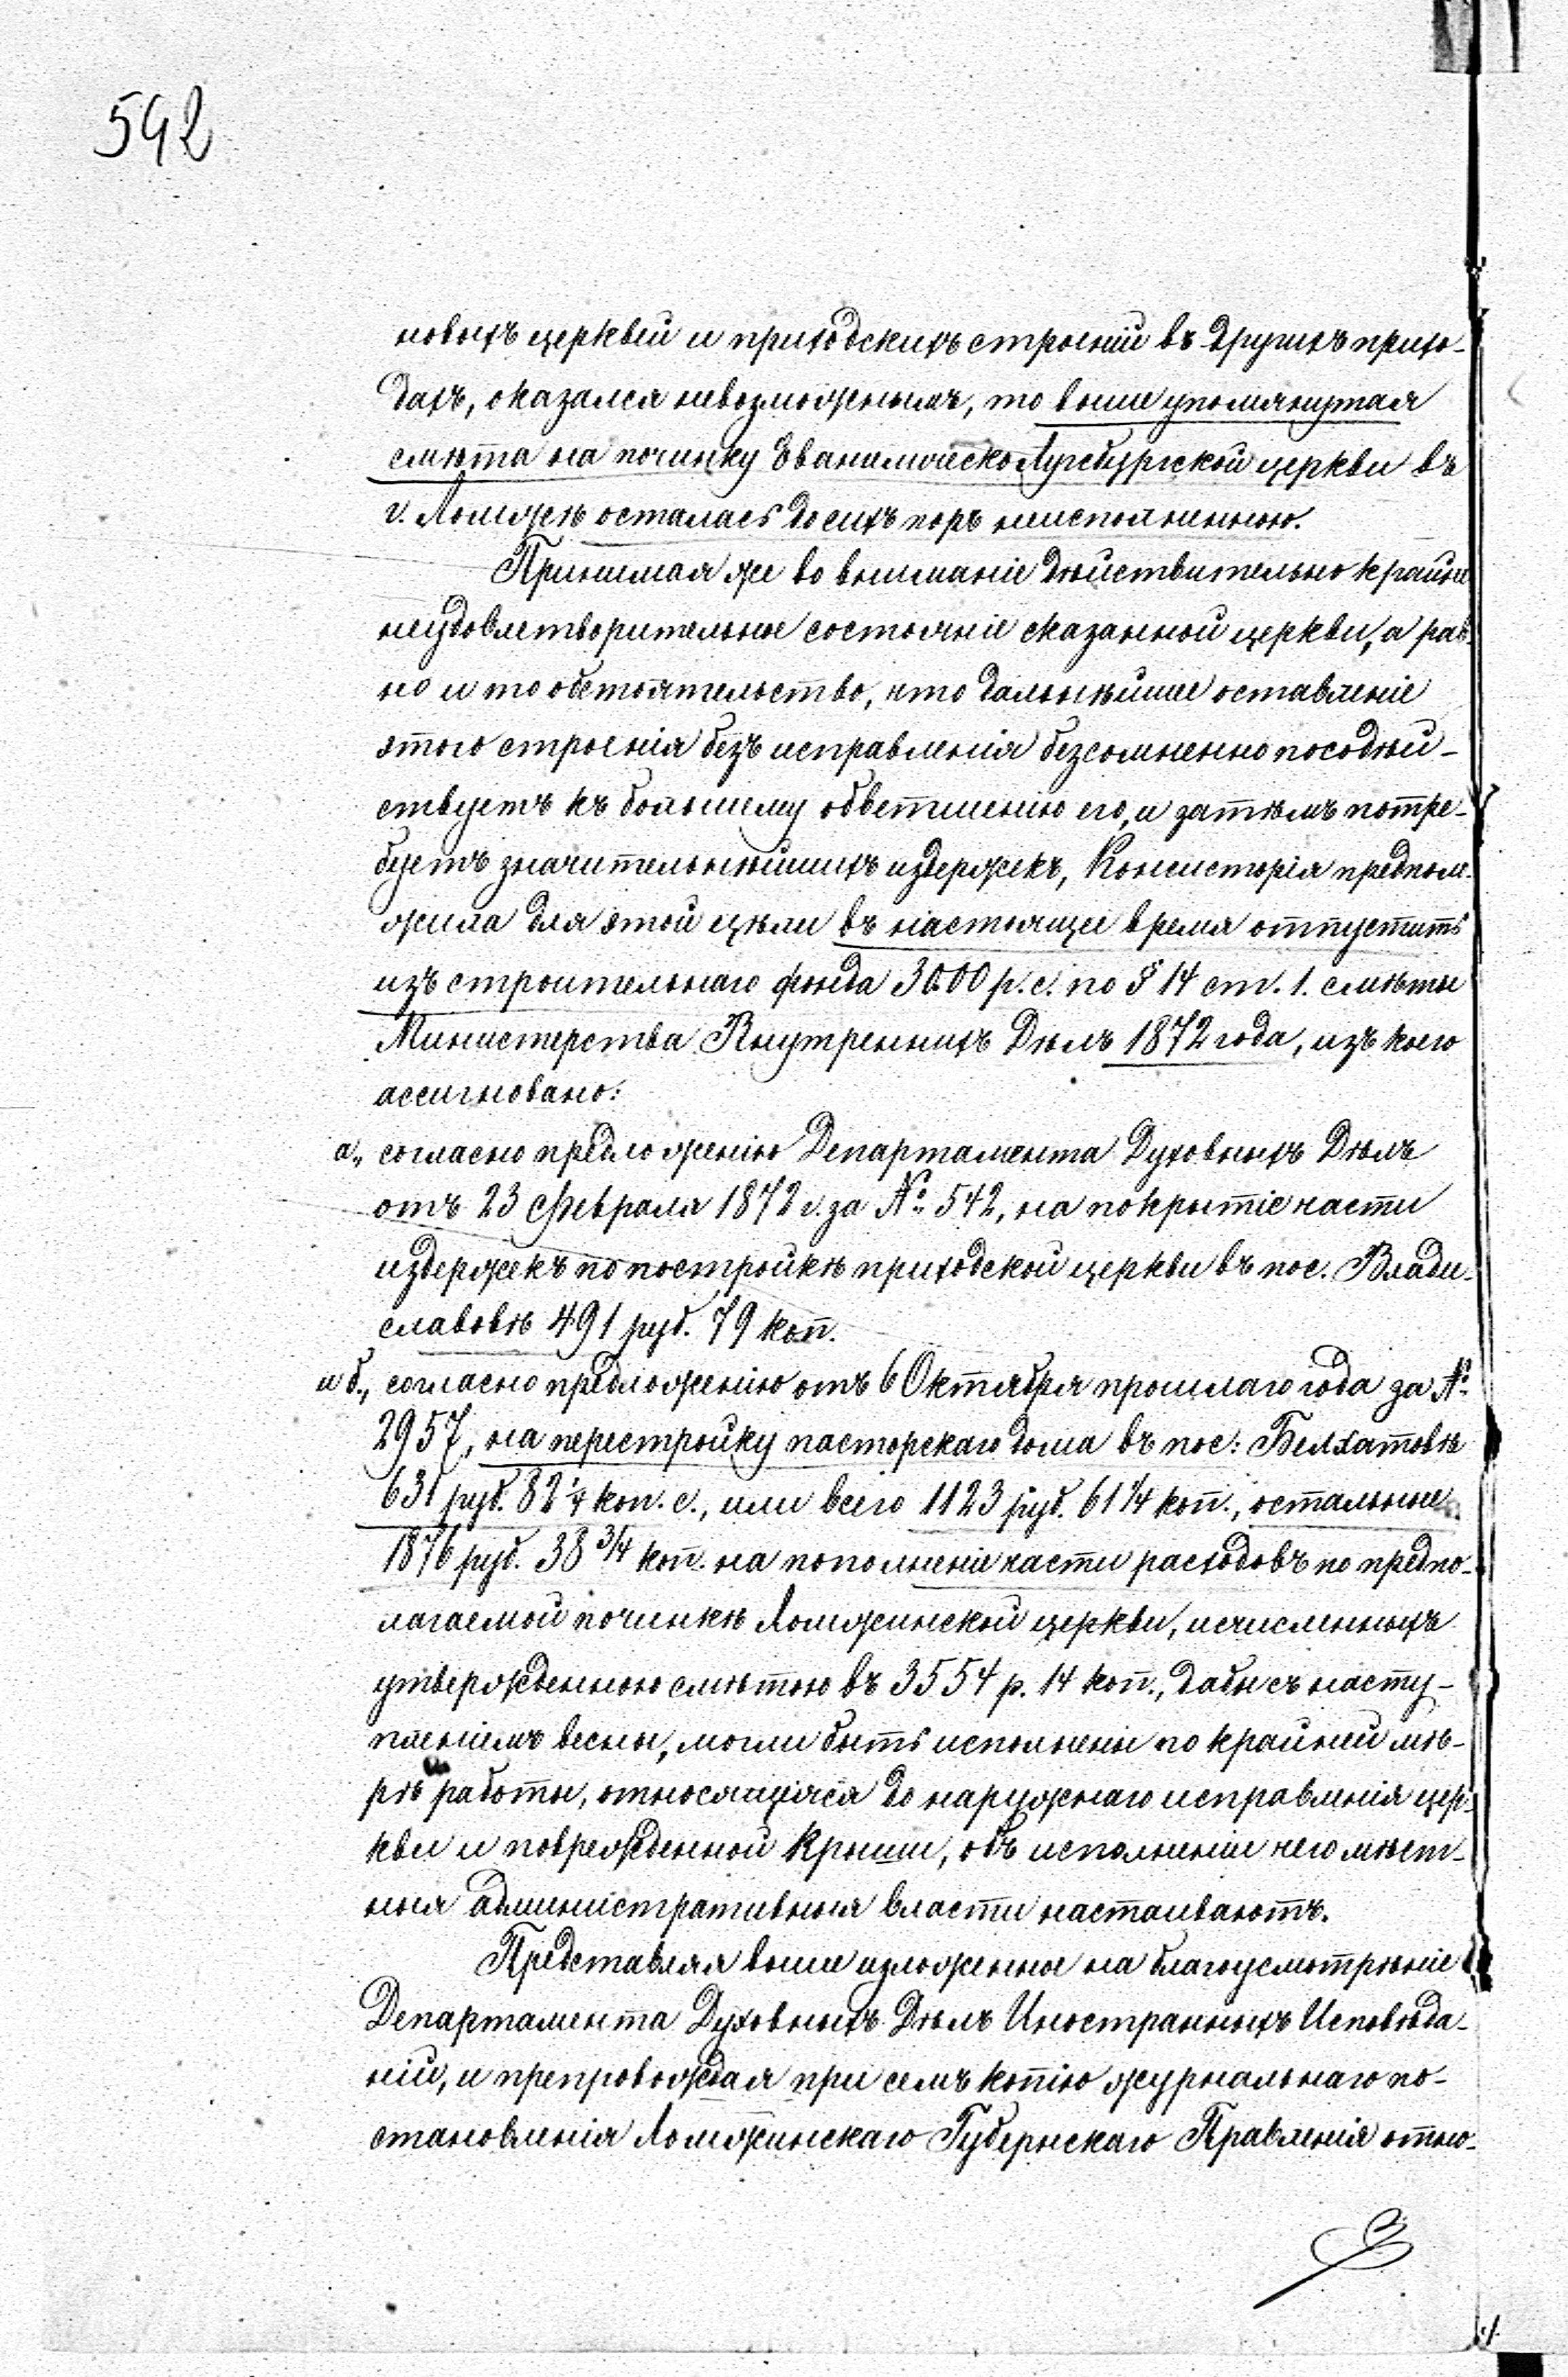 542
новыхъ церквей и приходскихъ строеній въ другихъ прихо-
дахъ, оказался невозможнымъ, то выше упомянутая
смѣта на починку Евангелическо Аугсбургской церкви въ
г. Ломжѣ осталась до сихъ поръ неисполненною.
Принимая же во вниманіе дѣйствительно крайне
неудовлетворительное состояніе сказанной церкви, а рав-
но и то обстоятельство, что дальнѣйшее оставленіе
этого строенія безъ исправленія безсомненно посодѣй-
ствуетъ къ большему обветшенію его, и затѣмъ потре-
буетъ значительнѣйшихъ издержекъ, Консисторія предполо-
жила для этой цѣли въ настоящее время отпустить
изъ строительнаго фонда 3000 р. с. по § 14 ст. 1. смѣты
Министерства Внутреннихъ Дѣлъ 1872 года, изъ коего
ассигновано:
а., согласно предложенію Департамента Духовныхъ Дѣлъ
отъ 23 Февраля 1872 г. за № 542, на покрытіе части
издержекъ по постройкѣ приходской церкви въ пос. Влади-
славовѣ 491 руб. 79 коп.
и б., согласно предложенію отъ 6 Октября прошлаго года за №
2957, на перестройку пасторскаго дома въ пос: Белхатовѣ
631 руб. 82 ¼ коп. с., или всего 1123 руб. 61 ¼ коп., остальные
1876 руб. 38 ¾ коп. на пополненіе части расходовъ по предпо-
лагаемой починкѣ Ломжинской церкви, исчисленныхъ
утвержденною смѣтою въ 3554 р. 14 коп., дабы съ насту-
пленіемъ весны, могли быть исполнены по крайней мѣ-
рѣ работы, относящіяся до наружнаго исправленія цер-
кви и поврежденной крыши, объ исполненіи чего мѣст-
ныя административныя власти настаиваютъ.
Представляя выше изложенное на благоусмотрѣніе
Департамента Духовныхъ Дѣлъ Иностранныхъ Исповѣда-
ній, и препровождая при семъ копію журнальнаго по-
становленія Ломжинскаго Губернскаго Правленія отно-